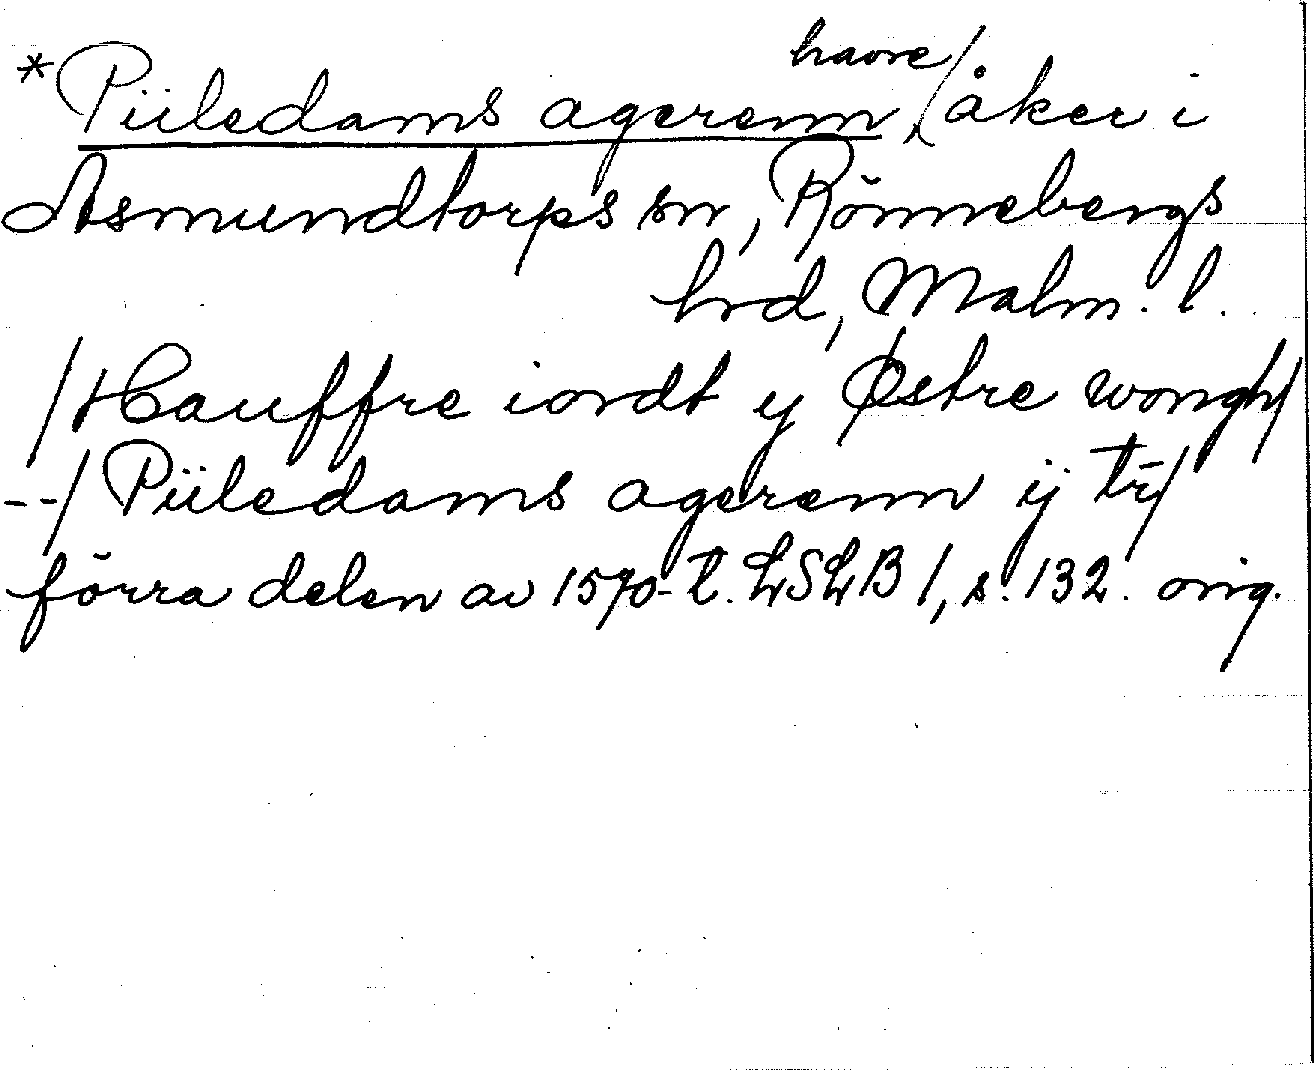 *Piiledams agerenn, havre/åker i
Asmundtorps sn, Rönnebergs
hrd, Malm. l.
/Hauffre iordt y Østre wongh/
--/Piiledams agerenn ij tr̄/
förra delen av 1570-t. LSLB 1, s. 132. orig.